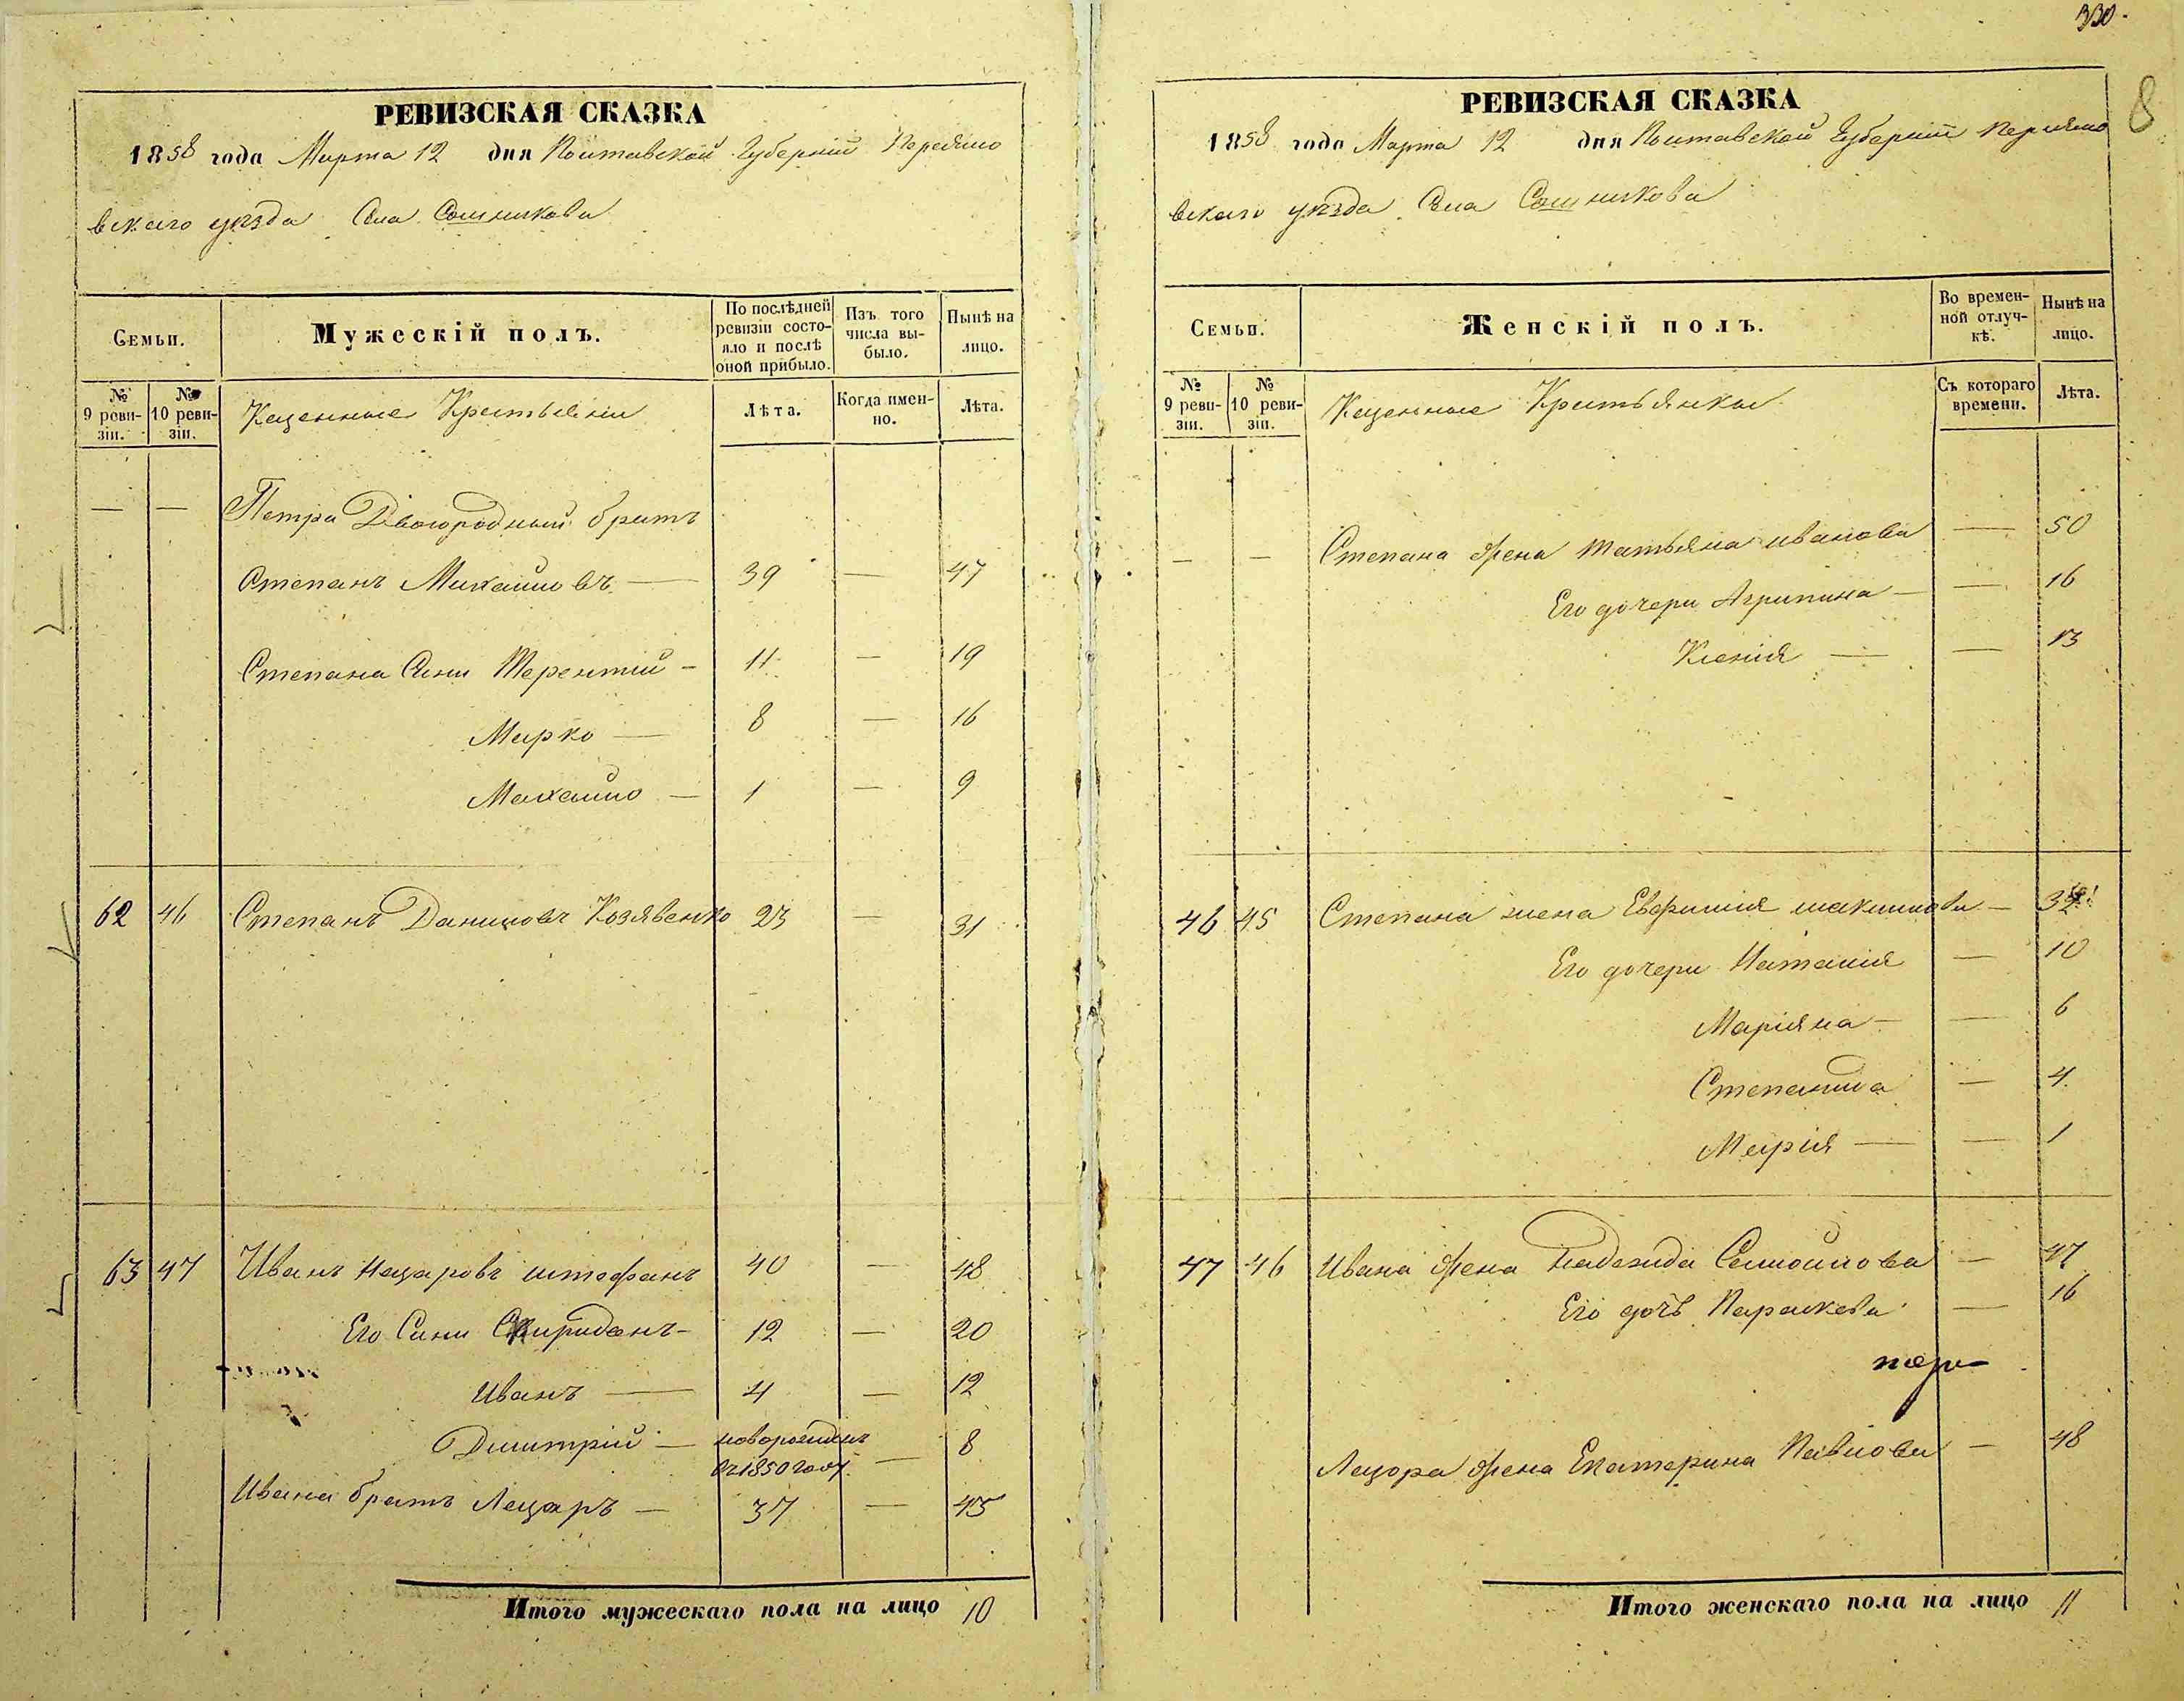 330.
8
РЕВИЗСКАЯ СКАЗКА
1858 года Марта 12 дня Полтавской Губерніи Переясло
вскаго уѣзда Села Сошникова
Семьи.
Мужескій полъ.
По послѣдней ревизіи состояло и послѣ оной прибыло.
Изъ того числа выбыло.
Нынѣ на лицо.
№ 9 ревизіи.
№ 10 ревизіи.
Казенные Крестьяни
Лѣта.
Когда именно.
Лѣта.
— — Петра Двоюродный братъ
Степанъ Михайловъ — 39 — 47
Степана Сини Терентій — 11 — 19
Марко — 8 — 16
Михайло — 1 — 9
62 46 Степанъ Даниловъ Козявенко 23 — 31
63 47 Иванъ Назаровъ штефанъ 40 — 48
Его Сини Спиридонъ — 12 — 20
Иванъ — 4 — 12
Димитрій — новорожденъ
въ 1850 году. — 8
Ивана братъ Лазаръ — 37 — 45
Итого мужескаго пола на лицо 10
РЕВИЗСКАЯ СКАЗКА
1858 года Марта 12 дня Полтавской Губерніи Переясло
вскаго уѣзда Села Сошникова
Семьи.
Женскій полъ.
Во временной отлучкѣ.
Нынѣ на лицо.
№ 9 ревизіи.
№ 10 ревизіи.
Казенные Крестьянки
Съ котораго времени.
Лѣта.
— — Степана жена Татьяна иванова — 50
Его дочери Агрипина — — 16
Ксенія — — 13
46 45 Степана жена Евфимія максимова —
Его дочери Наталія — 10
Маріяна — — 6
Степанида — 4
Марія — — 1
47 46 Ивана жена Надежда Самойлова — 47
Его дочъ Параскева — 16
Лазора жена Екатерина Павлова — 48
Итого женскаго пола на лицо 11